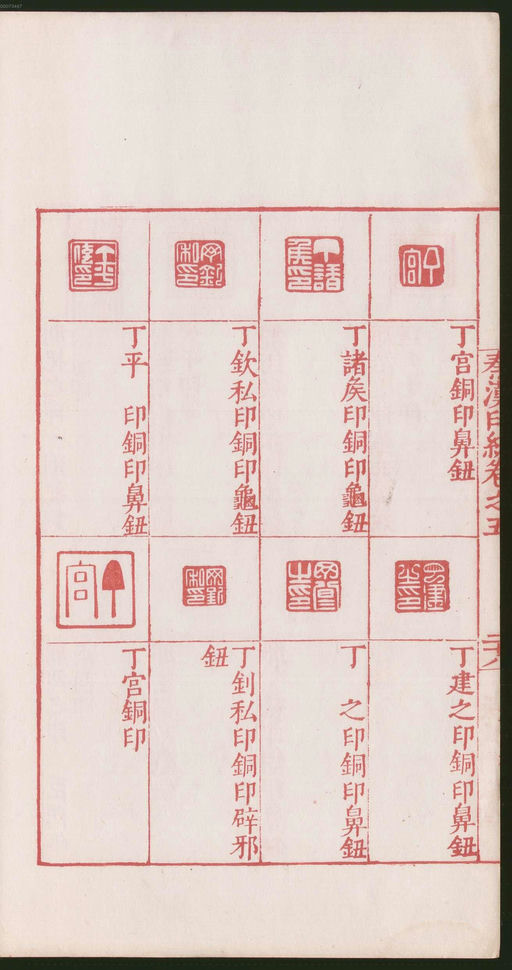 00073467
秦漢印統卷之五
二八
丁宫銅印鼻鈕
丁諸矦印銅印龜鈕
丁欽私印銅印龜鈕
丁平 印銅印鼻鈕
丁建之印銅印鼻鈕
丁 之印銅印鼻鈕
丁釗私印銅印辟邪
鈕
丁宫銅印